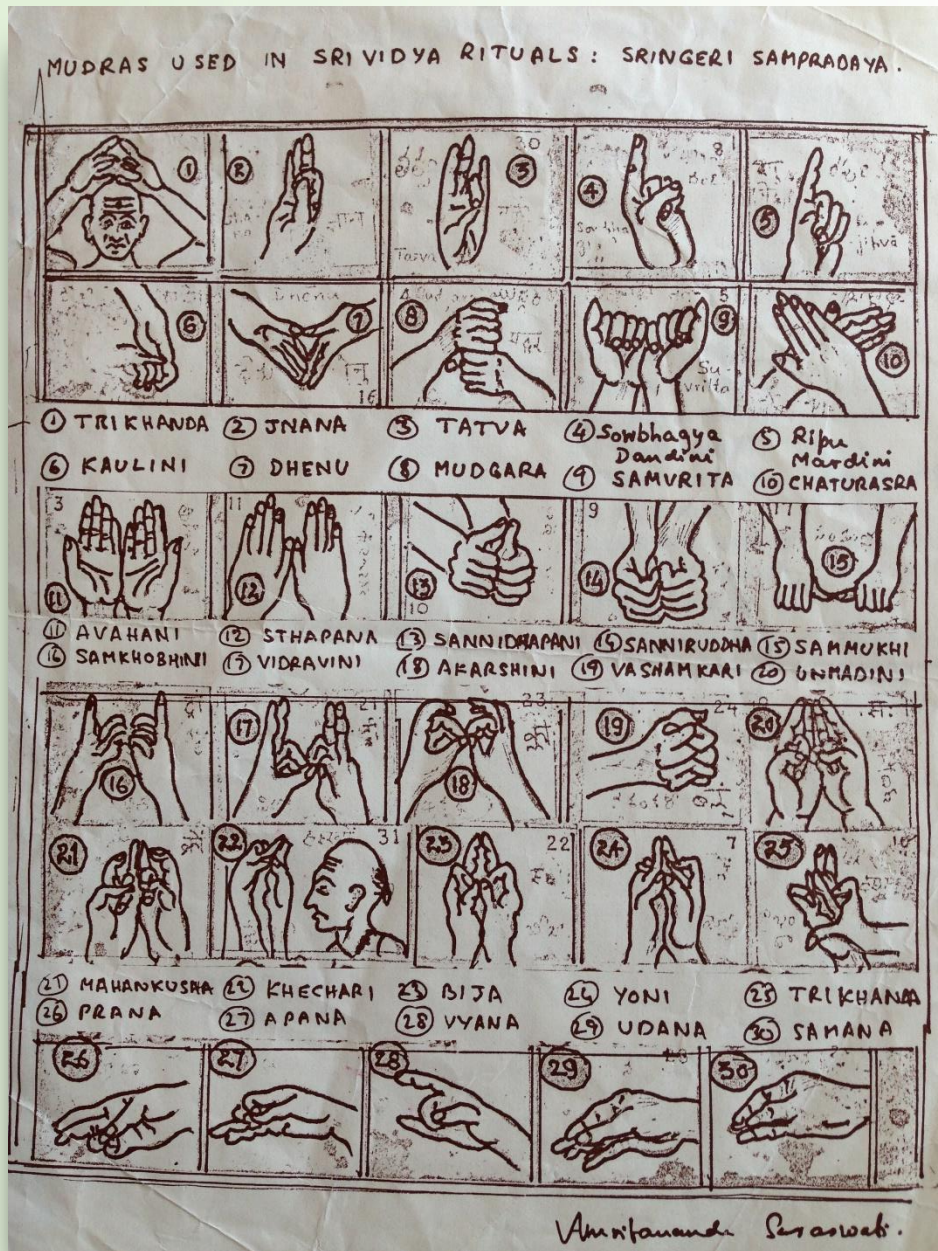 MUDRAS USED IN SRI VIDYA RITUALS : SRINGERI SAMPRADAYA.
1 2 30 3 4 8 5
6 7 16 8 5 9 10
Su
vritta
① TRIKHANDA ② JNANA ③ TATVA ④ Sowbhagya Dandini ⑤ Ripu Mardini
⑥ KAULINI ⑦ DHENU ⑧ MUDGARA ⑨ SAMVRITA ⑩ CHATURASRA
3 11 11 12 13 10 9 14 17 15
⑪ AVAHANI ⑫ STHAPANA ⑬ SANNIDHAPANI ⑭ SANNIRUDDHA ⑮ SAMMUKHI
⑯ SAMKHOBHINI ⑰ VIDRAVINI ⑱ AKARSHINI ⑲ VASHAMKARI ⑳ UNMADINI
16 17 21 18 23 19 24 20
21 22 31 23 22 24 7 25
㉑ MAHANKUSHA ㉒ KHECHARI ㉓ BIJA ㉔ YONI ㉕ TRIKHANDA
㉖ PRANA ㉗ APANA ㉘ VYANA ㉙ UDANA ㉚ SAMANA
26 27 28 29 30
Amritananda Saraswati.